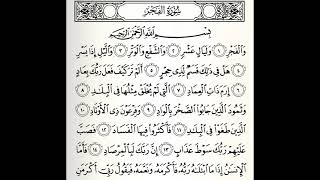 سُورَةُ الْفَجْرِ
بِسْمِ اللَّهِ الرَّحْمَٰنِ الرَّحِيمِ
وَالْفَجْرِ ١ وَلَيَالٍ عَشْرٍ ٢ وَالشَّفْعِ وَالْوَتْرِ ٣ وَالَّيْلِ إِذَا يَسْرِ
٤ هَلْ فِي ذَٰلِكَ قَسَمٌ لِّذِي حِجْرٍ ٥ أَلَمْ تَرَ كَيْفَ فَعَلَ رَبُّكَ بِعَادٍ
٦ إِرَمَ ذَاتِ الْعِمَادِ ٧ الَّتِي لَمْ يُخْلَقْ مِثْلُهَا فِي الْبِلَٰدِ ٨
وَثَمُودَ الَّذِينَ جَابُوا الصَّخْرَ بِالْوَادِ ٩ وَفِرْعَوْنَ ذِي الْأَوْتَادِ ١٠
الَّذِينَ طَغَوْا فِي الْبِلَٰدِ ١١ فَأَكْثَرُوا فِيهَا الْفَسَادَ ١٢ فَصَبَّ
عَلَيْهِمْ رَبُّكَ سَوْطَ عَذَابٍ ١٣ إِنَّ رَبَّكَ لَبِالْمِرْصَادِ ١٤ فَأَمَّا
الْإِنسَٰنُ إِذَا مَا ابْتَلَىٰهُ رَبُّهُ فَأَكْرَمَهُ وَنَعَّمَهُ فَيَقُولُ رَبِّي أَكْرَمَنِ